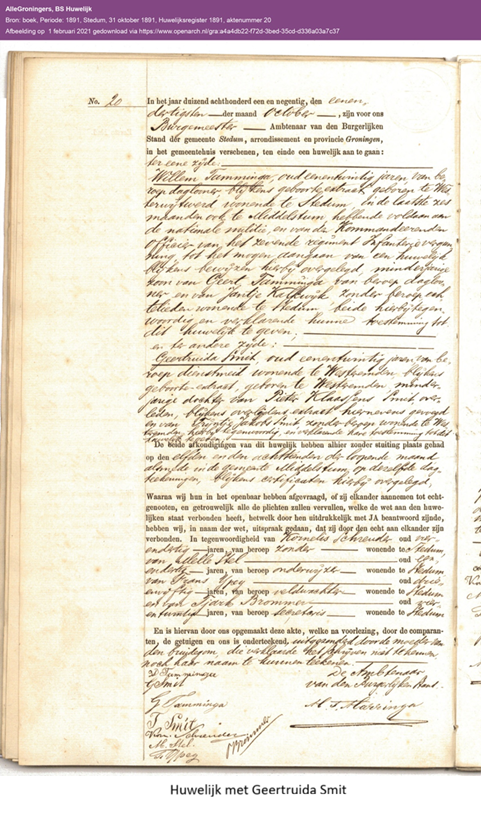 AlleGroningers, BS Huwelijk
Bron: boek, Periode: 1891, Stedum, 31 oktober 1891, Huwelijksregister 1891, aktenummer 20
Afbeelding op 1 februari 2021 gedownload via https://www.openarch.nl/gra:a4a4db22-f72d-3bed-35cd-d336a03a7c37
No. 20
In het jaar duizend achthonderd een en negentig, den eenen
dertigsten der maand October, zijn voor ons
Burgemeester Ambtenaar van den Burgerlijken
Stand der gemeente Stedum, arrondissement en provincie Groningen,
in het gemeentehuis verschenen, ten einde een huwelijk aan te gaan:
ter eene zijde:
Willem Tamminga, oud eenentwintig jaren van be
roep dagloner, blijkens geboorte extract geboren te Wes
terwijtwerd wonende te Stedum, in de laatste zes
maanden ook te Middelstum, hebbende voldaan aan
de nationale militie, en van de Kommandeerenden
officier van het zevende regiment Infanterie vergun
ning tot het mogen aangaan van een huwelijk
blijkens bewijzen hierbij overgelegd, minderjarige
zoon van Geert Tamminga van beroep dagloo
ner en van Jantje Kalkwijk zonder beroep, ech
telieden wonende te Stedum, beide hierbij tegen
woordig en verklarende hunne toestemming tot
dit huwelijk te geven;
en ter andere zijde:
Geertruida Smit, oud eenentwintig jaren, van be
roep dienstmeid wonende te Westeremden blijkens
geboorte extract, geboren te Westeremden minder
jarige dochter van Pieter Klaassens Smit over
leden, blijkens overlijdens extract hiernevens gevoegd
en van Trientje Jakobs Smit zonder beroep wonende te Wes
teremden, hierbij tegenwoordig, en verklarende hare toestemming tot dit
De beide afkondigingen van dit huwelijk hebben alhier zonder stuiting plaats gehad
op den elfden en den achttienden der loopende maand
alsmede in de gemeente Middelstum, op dezelfde dag
teekeningen, blijkens certificaten hierbij overgelegd,
Waarna wij hun in het openbaar hebben afgevraagd, of zij elkander aannemen tot echt-
genooten, en getrouwelijk alle de plichten zullen vervullen, welke de wet aan den huwe-
lijken staat verbonden heeft, hetwelk door hen uitdrukkelijk met JA beantwoord zijnde,
hebben wij, in naam der wet, uitspraak gedaan, dat zij door den echt aan elkander zijn
verbonden. In tegenwoordigheid van Kornelis Schreuder oud vier
endertig jaren, van beroep zonder wonende te Stedum
van Melle Stel oud
endertig jaren, van beroep onderwijzer wonende te Stedum
van Frans Ypey oud drie
envijftig jaren, van beroep veldwachter wonende te Stedum
en van Sjoerd Brommer oud vier
entwintig jaren, van beroep secretaris wonende te Stedum
En is hiervan door ons opgemaakt deze akte, welke na voorlezing, door de comparan-
ten, de getuigen en ons is onderteekend, uitgezonderd door de moeder van
den bruidegom, die verklaarde het schrijven niet te kennen
noch haar naam te kunnen teekenen.
W Tamminga
G Smit
G Tamminga
T Smit
Kor. Schreuder
M. Stel
F Ypey
S Brommer
De Ambtenaar
van den Burgerlijken Stand.
Huwelijk met Geertruida Smit